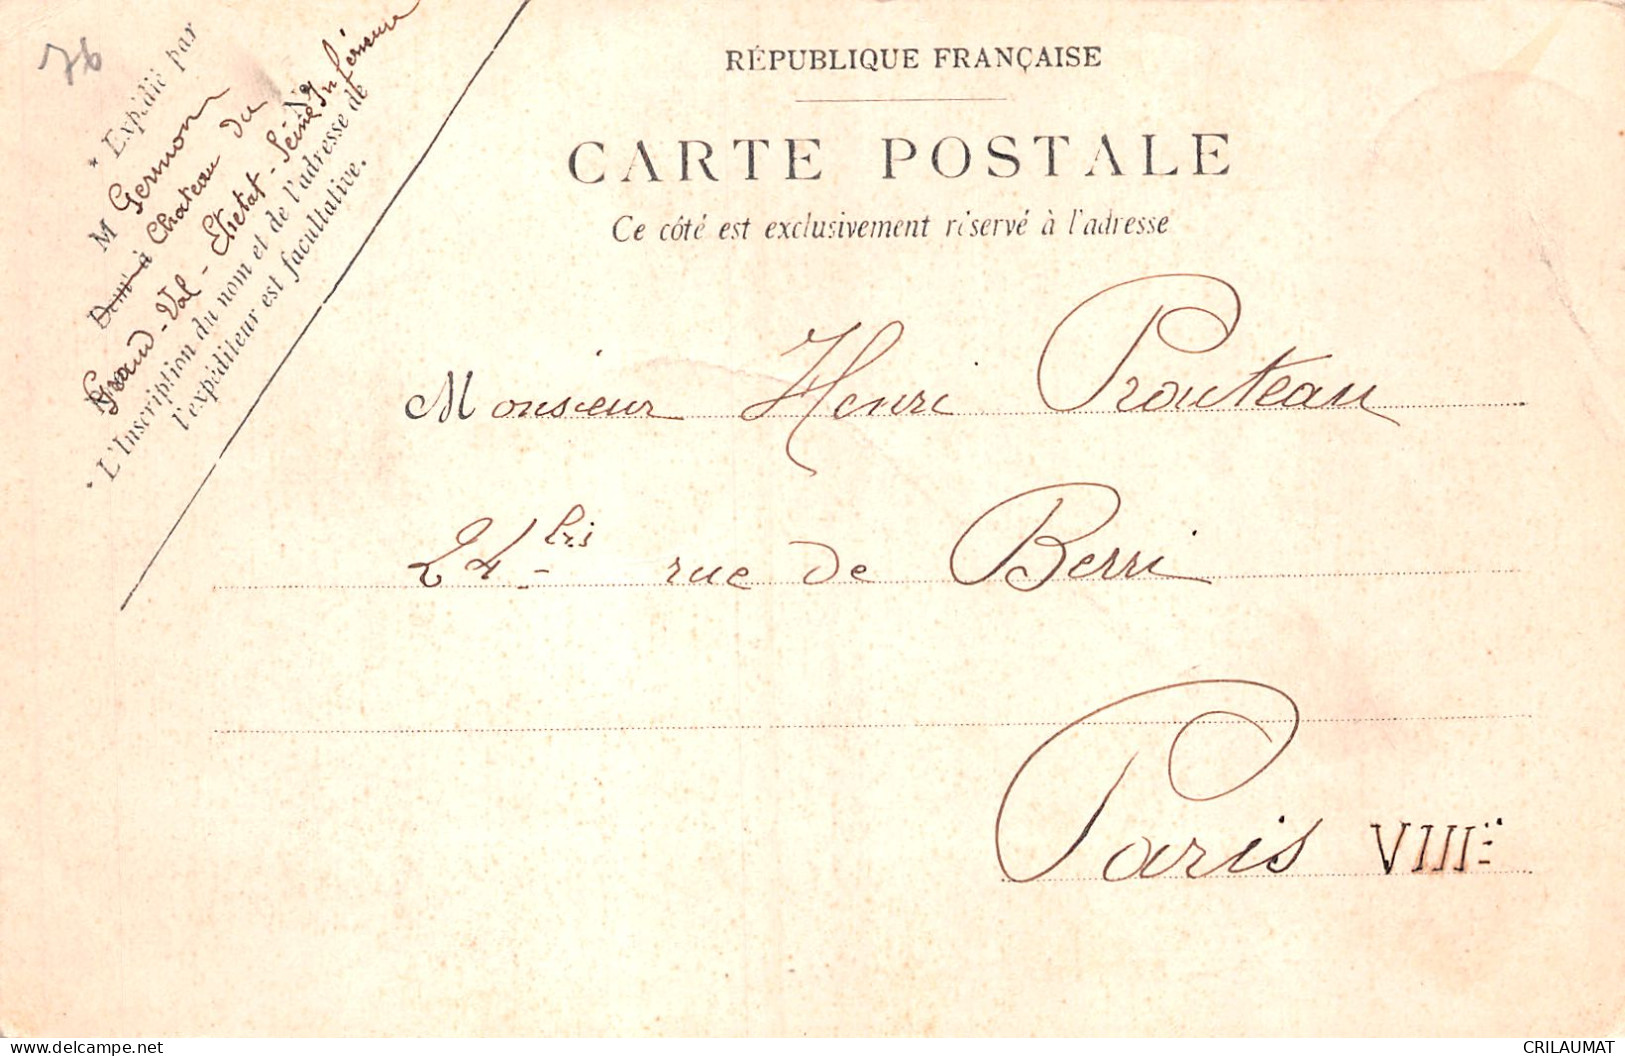 76
* Expédié par
M Germon
Demt à Chateau du
Grand-Val - Etretat - Seine Inférieure
No
* L'Inscription du nom et de l'adresse de
l'expéditeur est facultative.
RÉPUBLIQUE FRANÇAISE
CARTE POSTALE
Ce côté est exclusivement réservé à l'adresse
Monsieur Henri Prouteau
24 bis rue de Berri
Paris VIIIe
CRILAUMAT